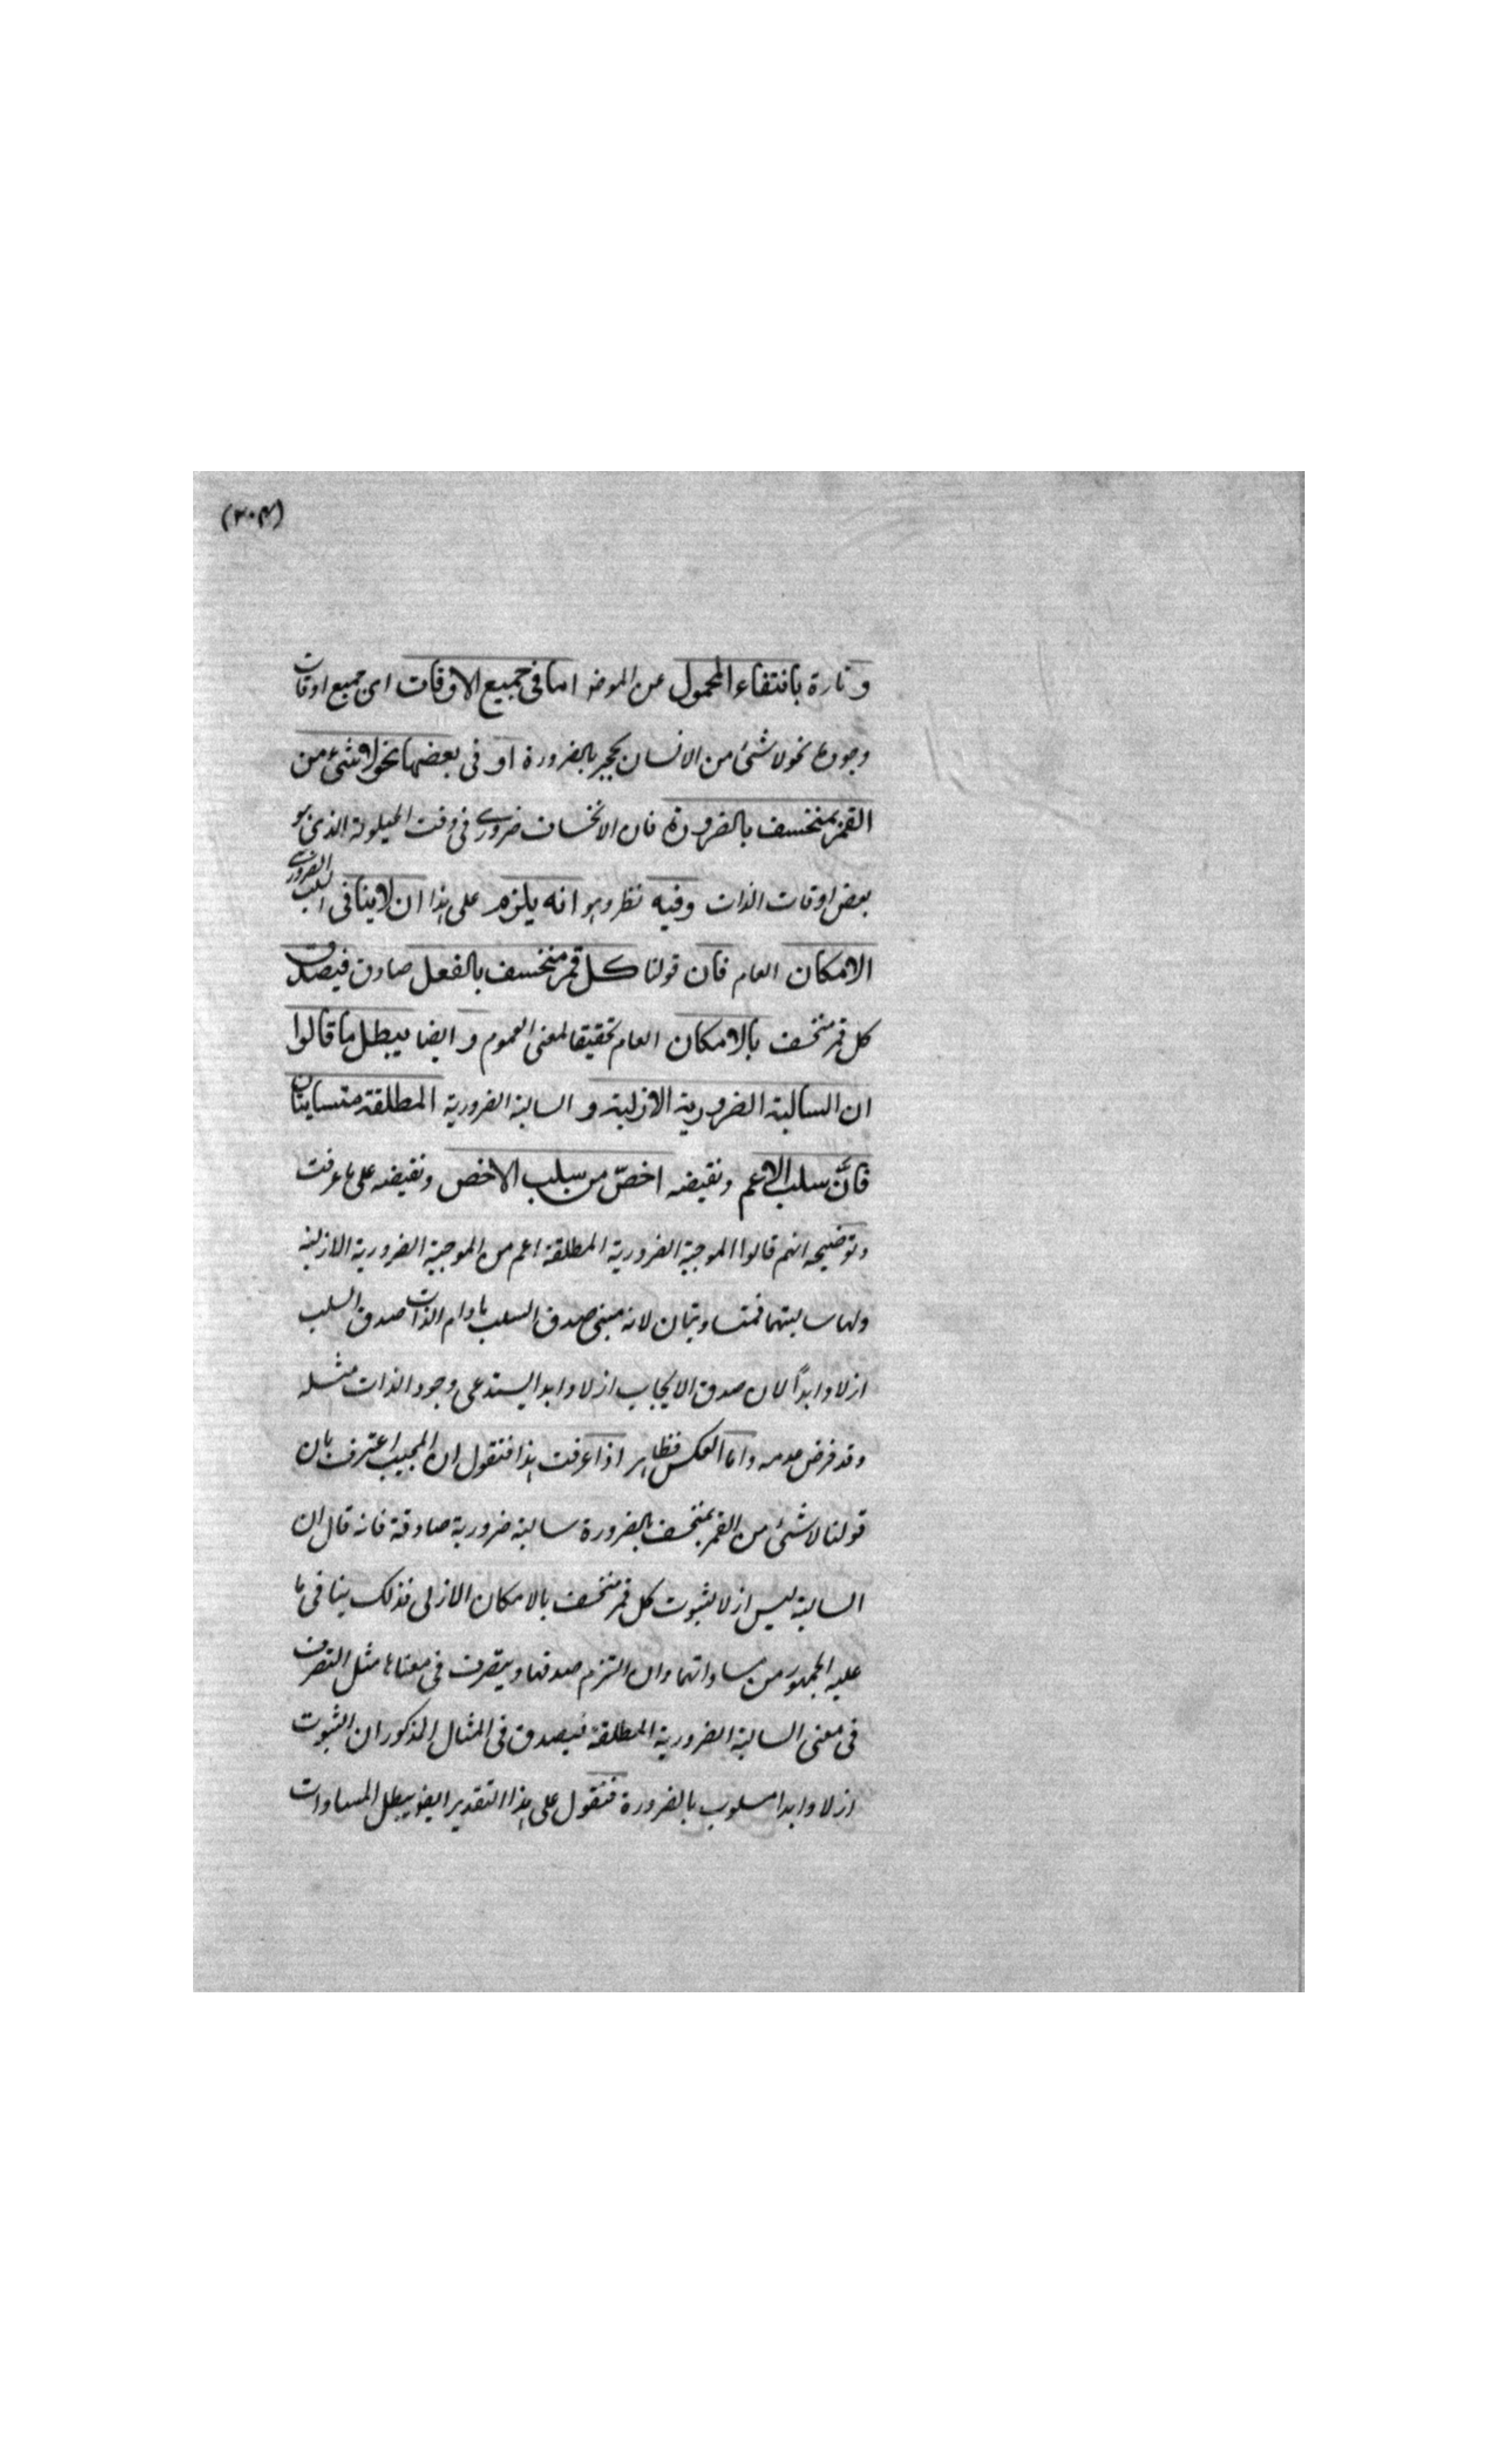 (٣٠٤)
وتارة بانتفاء المحمول عن الموضو اما فى جميع الاوقات اى جميع اوقات
وجودها نحو لا شئ من الانسان بحجر بالضرورة او فى بعضها نحو لا شئ من
القمر بمنخسف بالضرورة فان الانخساف ضرورى فى وقت الحيلولة الذى هو
بعض اوقات الذات وفيه نظر وهو انه يلزم على هذا ان لا ينافى السلب الضرورى
الامكان العام فان قولنا كل قمر منخسف بالفعل صادق فيصدق
كل قمر منخسف بالامكان العام تحقيقا لمعنى العموم و ايضا يبطل ما قالوا
ان السالبة الضرورية الازلية و السالبة الضرورية المطلقة متساويتان
فانَّ سلب الاعم ونقيضه اخصّ من سلب الاخص ونقيضه على ما عرفت
وتوضيحه انهم قالوا الموجبة الضرورية المطلقة اعم من الموجبة الضرورية الازلية
واما سالبتهما فمتساويتان لانه متى صدق السلب ما دام الذات صدق السلب
ازلا وابداً لان صدق الايجاب ازلا وابدا يستدعى وجود الذات مثله
وقد فرض عدمه واما العكس فظاهر اذا عرفت هذا فنقول ان المجيب اعترف بان
قولنا لا شئ من القمر بمنخسف بالضرورة سالبة ضرورية صادقة فانه قال ان
السالبة ليس ازلا لثبوت كل قمر منخسف بالامكان الازلى فذلك ينافى ما
عليه الجمهور من مساواتهما وان التزم صدقها ويتصرف فى معناها مثل التصرف
فى معنى السالبة الضرورية المطلقة فيصدق فى المثال المذكور ان الثبوت
ازلا وابدا مسلوب بالضرورة فنقول على هذا التقدير ايضا يبطل المساوات